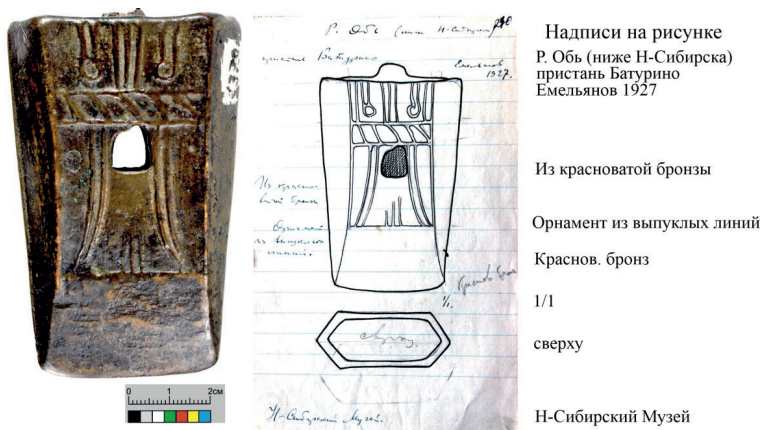 0 1 2см
240
Р. Обь (ниже Н-Сибирска)
пристань Батурино
Емельянов
1927.
Из краснова-
той бронзы
Орнамент
из выпуклых
линий.
Краснов. бронз
1/1.
сверху
Н-Сибирский Музей.
Надписи на рисунке
Р. Обь (ниже Н-Сибирска)
пристань Батурино
Емельянов 1927
Из красноватой бронзы
Орнамент из выпуклых линий
Краснов. бронз
1/1
сверху
Н-Сибирский Музей